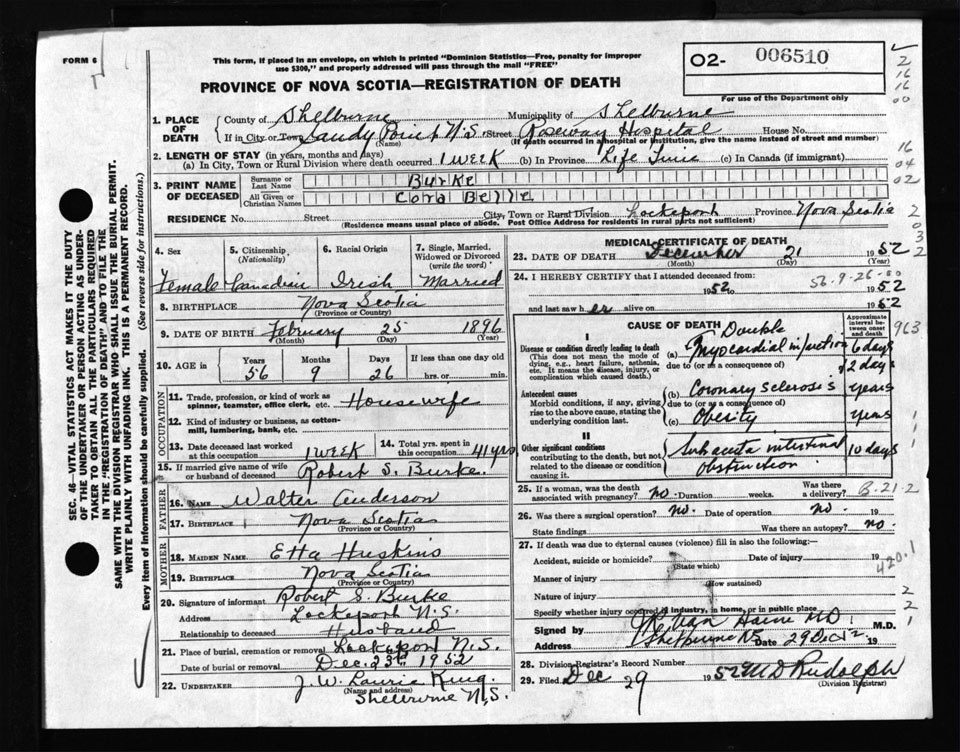 FORM 6
This form, if placed in an envelope, on which is printed "Dominion Statistics—Free, penalty for improper
use $300," and properly addressed will pass through the mail "FREE"
PROVINCE OF NOVA SCOTIA—REGISTRATION OF DEATH
O2- 006510
For use of the Department only
2
16
16
00
1. PLACE OF DEATH County of Shelburne Municipality of Shelburne
If in City or Town Sandy Point N.S. Street Roseway Hospital House No.
(Name) (If death occurred in a hospital or institution, give the name instead of street and number)
2. LENGTH OF STAY (in years, months and days)
(a) In City, Town or Rural Division where death occurred 1 WEEK (b) In Province Life Time (c) In Canada (if immigrant)
16
04
02
3. PRINT NAME OF DECEASED Surname or Last Name Burke
All Given or Christian Names Cora Belle
RESIDENCE No. Street City, Town or Rural Division Lockeport Province Nova Scotia
(Residence means usual place of abode. Post Office Address for residents in rural parts not sufficient)
2
0
3
2
4. Sex 5. Citizenship (Nationality) 6. Racial Origin 7. Single, Married, Widowed or Divorced (write the word)
Female Canadian Irish Married
8. BIRTHPLACE Nova Scotia
(Province or Country)
9. DATE OF BIRTH February 25 1896
(Month) (Day) (Year)
10. AGE in Years Months Days If less than one day old
56 9 26 hrs. or min.
OCCUPATION
11. Trade, profession, or kind of work as spinner, teamster, office clerk, etc. Housewife
12. Kind of industry or business, as cotton-mill, lumbering, bank, etc.
13. Date deceased last worked at this occupation 1 WEEK 14. Total yrs. spent in this occupation 41 yrs
15. If married give name of wife or husband of deceased Robert S. Burke.
FATHER
16. NAME Walter Anderson
17. BIRTHPLACE Nova Scotia
(Province or Country)
MOTHER
18. MAIDEN NAME Etta Huskins
19. BIRTHPLACE Nova Scotia
(Province or Country)
20. Signature of informant Robert S. Burke
Address Lockeport N.S.
Relationship to deceased Husband
21. Place of burial, cremation or removal Lockeport N.S.
Date of burial or removal Dec. 23rd 1952
22. UNDERTAKER J. W. Laurie King.
(Name and address)
Shelburne N.S.
MEDICAL CERTIFICATE OF DEATH
23. DATE OF DEATH December 21 1952
(Month) (Day) (Year)
24. I HEREBY CERTIFY that I attended deceased from:
56-9-26-00
1952 to 1952
and last saw her alive on 1952
CAUSE OF DEATH Approximate interval between onset and death
963
I Double
Disease or condition directly leading to death (a) Myocardial infarction 6 days
(This does not mean the mode of dying, e.g., heart failure, asthenia, etc. It means the disease, injury, or complication which caused death.)
due to (or as a consequence of) 2 days
Antecedent causes (b) Coronary Sclerosis years
Morbid conditions, if any, giving rise to the above cause, stating the underlying condition last.
due to (or as a consequence of)
(c) Obesity years
II
Other significant conditions contributing to the death, but not related to the disease or condition causing it. Sub acute intestinal obstruction 10 days
1
1
1
25. If a woman, was the death associated with pregnancy? no. Duration weeks. Was there a delivery? B-21-2
26. Was there a surgical operation? no. Date of operation no. 19
State findings Was there an autopsy? no.
27. If death was due to external causes (violence) fill in also the following:
420.1
Accident, suicide or homicide? Date of injury 19
(State which)
Manner of injury
(How sustained)
Nature of injury
2
Specify whether injury occurred in industry, in home, or in public place
2
Signed by M.D.
1
Address Shelburne NS Date 29 Dec 19
28. Division Registrar's Record Number
29. Filed Dec 29 1952 M D Rudolph
(Division Registrar)
SEC. 46—VITAL STATISTICS ACT MAKES IT THE DUTY
OF THE UNDERTAKER OR PERSON ACTING AS UNDER-
TAKER TO OBTAIN ALL THE PARTICULARS REQUIRED
IN THE "REGISTRATION OF DEATH" AND TO FILE THE
SAME WITH THE DIVISION REGISTRAR WHO SHALL ISSUE THE BURIAL PERMIT.
WRITE PLAINLY WITH UNFADING INK. THIS IS A PERMANENT RECORD.
Every item of information should be carefully supplied. (See reverse side for instructions.)